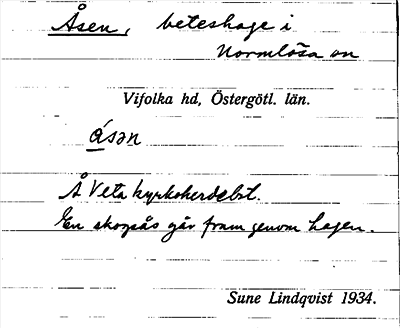 Åsen, beteshage i
Normlösa sn
Vifolka hd, Östergötl. län.
åsən
Å Veta kyrkoherdebst.
En skogsås går fram genom hagen.
Sune Lindqvist 1934.